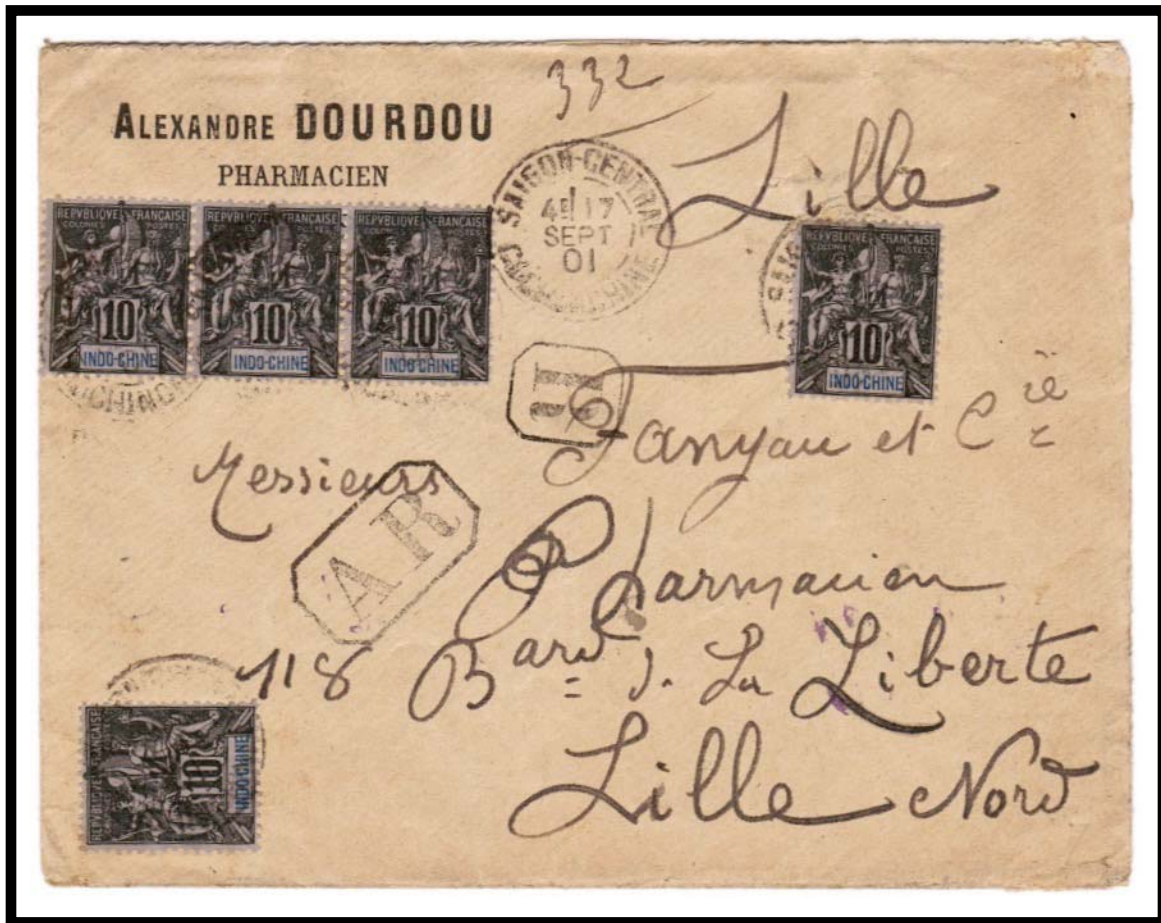 332
ALEXANDRE DOURDOU
PHARMACIEN
Lille
SAIGON-CENTRAL
1
4E 17
SEPT
01
COCHINCHINE
REPVBLIQVE FRANÇAISE
COLONIES POSTES
10
INDO-CHINE
REPVBLIQVE FRANÇAISE
COLONIES POSTES
10
INDO-CHINE
REPVBLIQVE FRANÇAISE
COLONIES POSTES
10
INDO-CHINE
REPVBLIQVE FRANÇAISE
COLONIES POSTES
10
INDO-CHINE
R
Messieurs Fanyau et Cie
AR
Pharmacien
118 Bard d. La Liberte
Lille Nord
REPVBLIQVE FRANÇAISE
10
INDO-CHINE